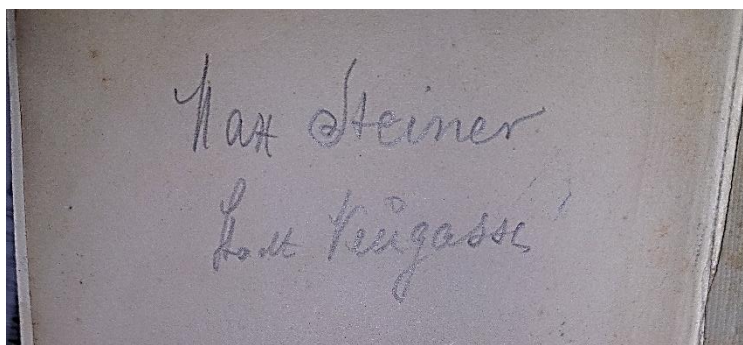 Max Steiner
Stadt Neugasse